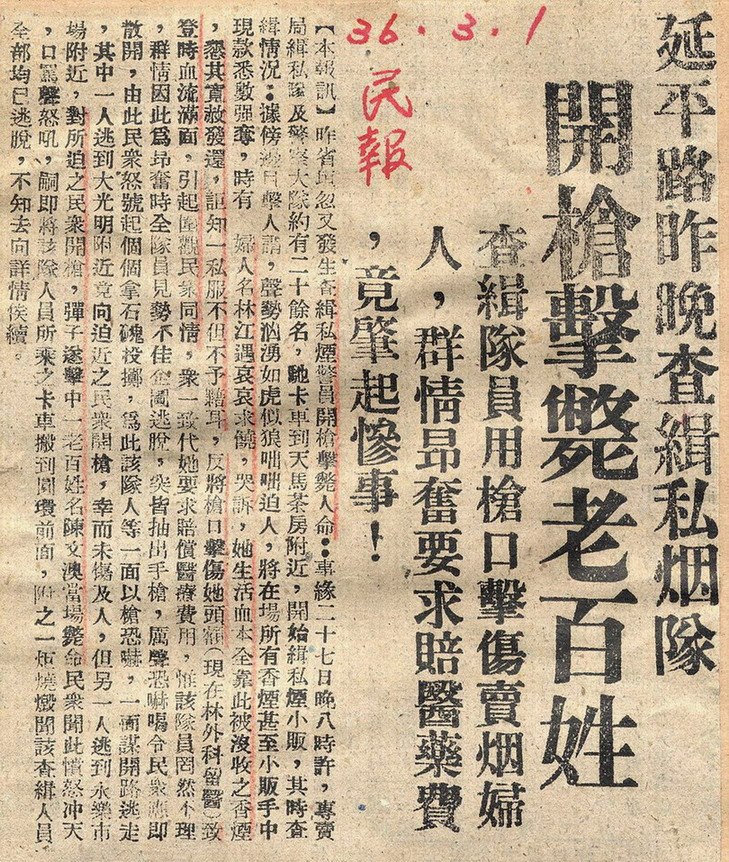 延平路昨晚查緝私烟隊
開槍擊斃老百姓
查緝隊員用槍口擊傷賣烟婦
人，群情昂奮要求賠醫藥費
，竟肇起慘事！
36.3.1
民報
【本報訊】昨省垣忽又發生查緝私煙警員開槍擊斃人命：事緣二十七日晚八時許，專賣
局緝私隊及警察大隊約有二十餘名，馳卡車到天馬茶房附近，開始緝私煙小販，其時查
緝情況：據傍邊目擊人謂，聲勢洶湧如虎似狼咄咄迫人，將在場所有香煙甚至小販手中
現款悉數强奪，時有 婦人名林江邁哀哀求饒，哭訴，她生活血本全靠此被沒收之香煙
，懇其寬赦發還，詎知一私服不但不予聽耳，反將槍口擊傷她頭額（現在林外科留醫）致
登時血流滿面，引起圍觀民衆同情，衆一致代她要求賠償醫療費用，惟該隊員罔然不理
，群情因此爲昂奮時全隊員見勢不佳企圖逃脫，突皆抽出手槍，厲聲恐嚇喝令民衆應即
散開，由此民衆怒號起個個拿石磈投擲，爲此該隊人等一面以槍恐嚇，一面謀開路逃走
，其中一人逃到大光明附近竟向迫近之民衆開槍，幸而未傷及人，但另一人逃到永樂市
場附近，對所迫之民衆開槍，彈子遂擊中一老百姓名陳文溪當場斃命民衆聞此憤怒冲天
，口罵聲怒吼，嗣即將該隊人員所乘之卡車搬到圓環前面，附之一炬燒燬聞該查緝人員
全部均已逃脫，不知去向詳情俟續。